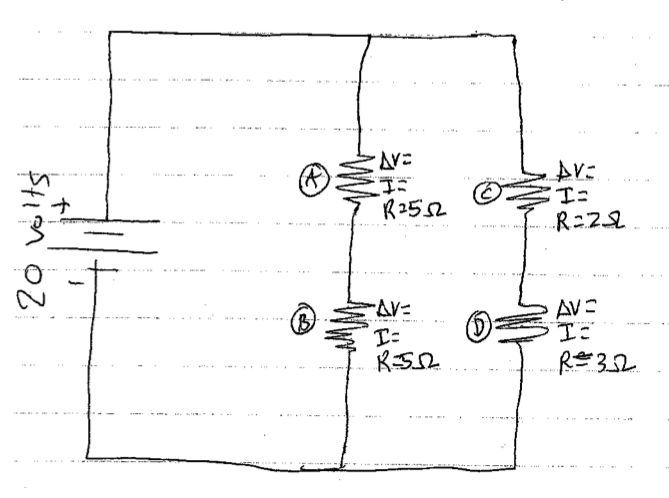 20 volts
+
-
A
ΔV=
I=
R=5Ω
B
ΔV=
I=
R=5Ω
C
ΔV=
I=
R=2Ω
D
ΔV=
I=
R=3Ω